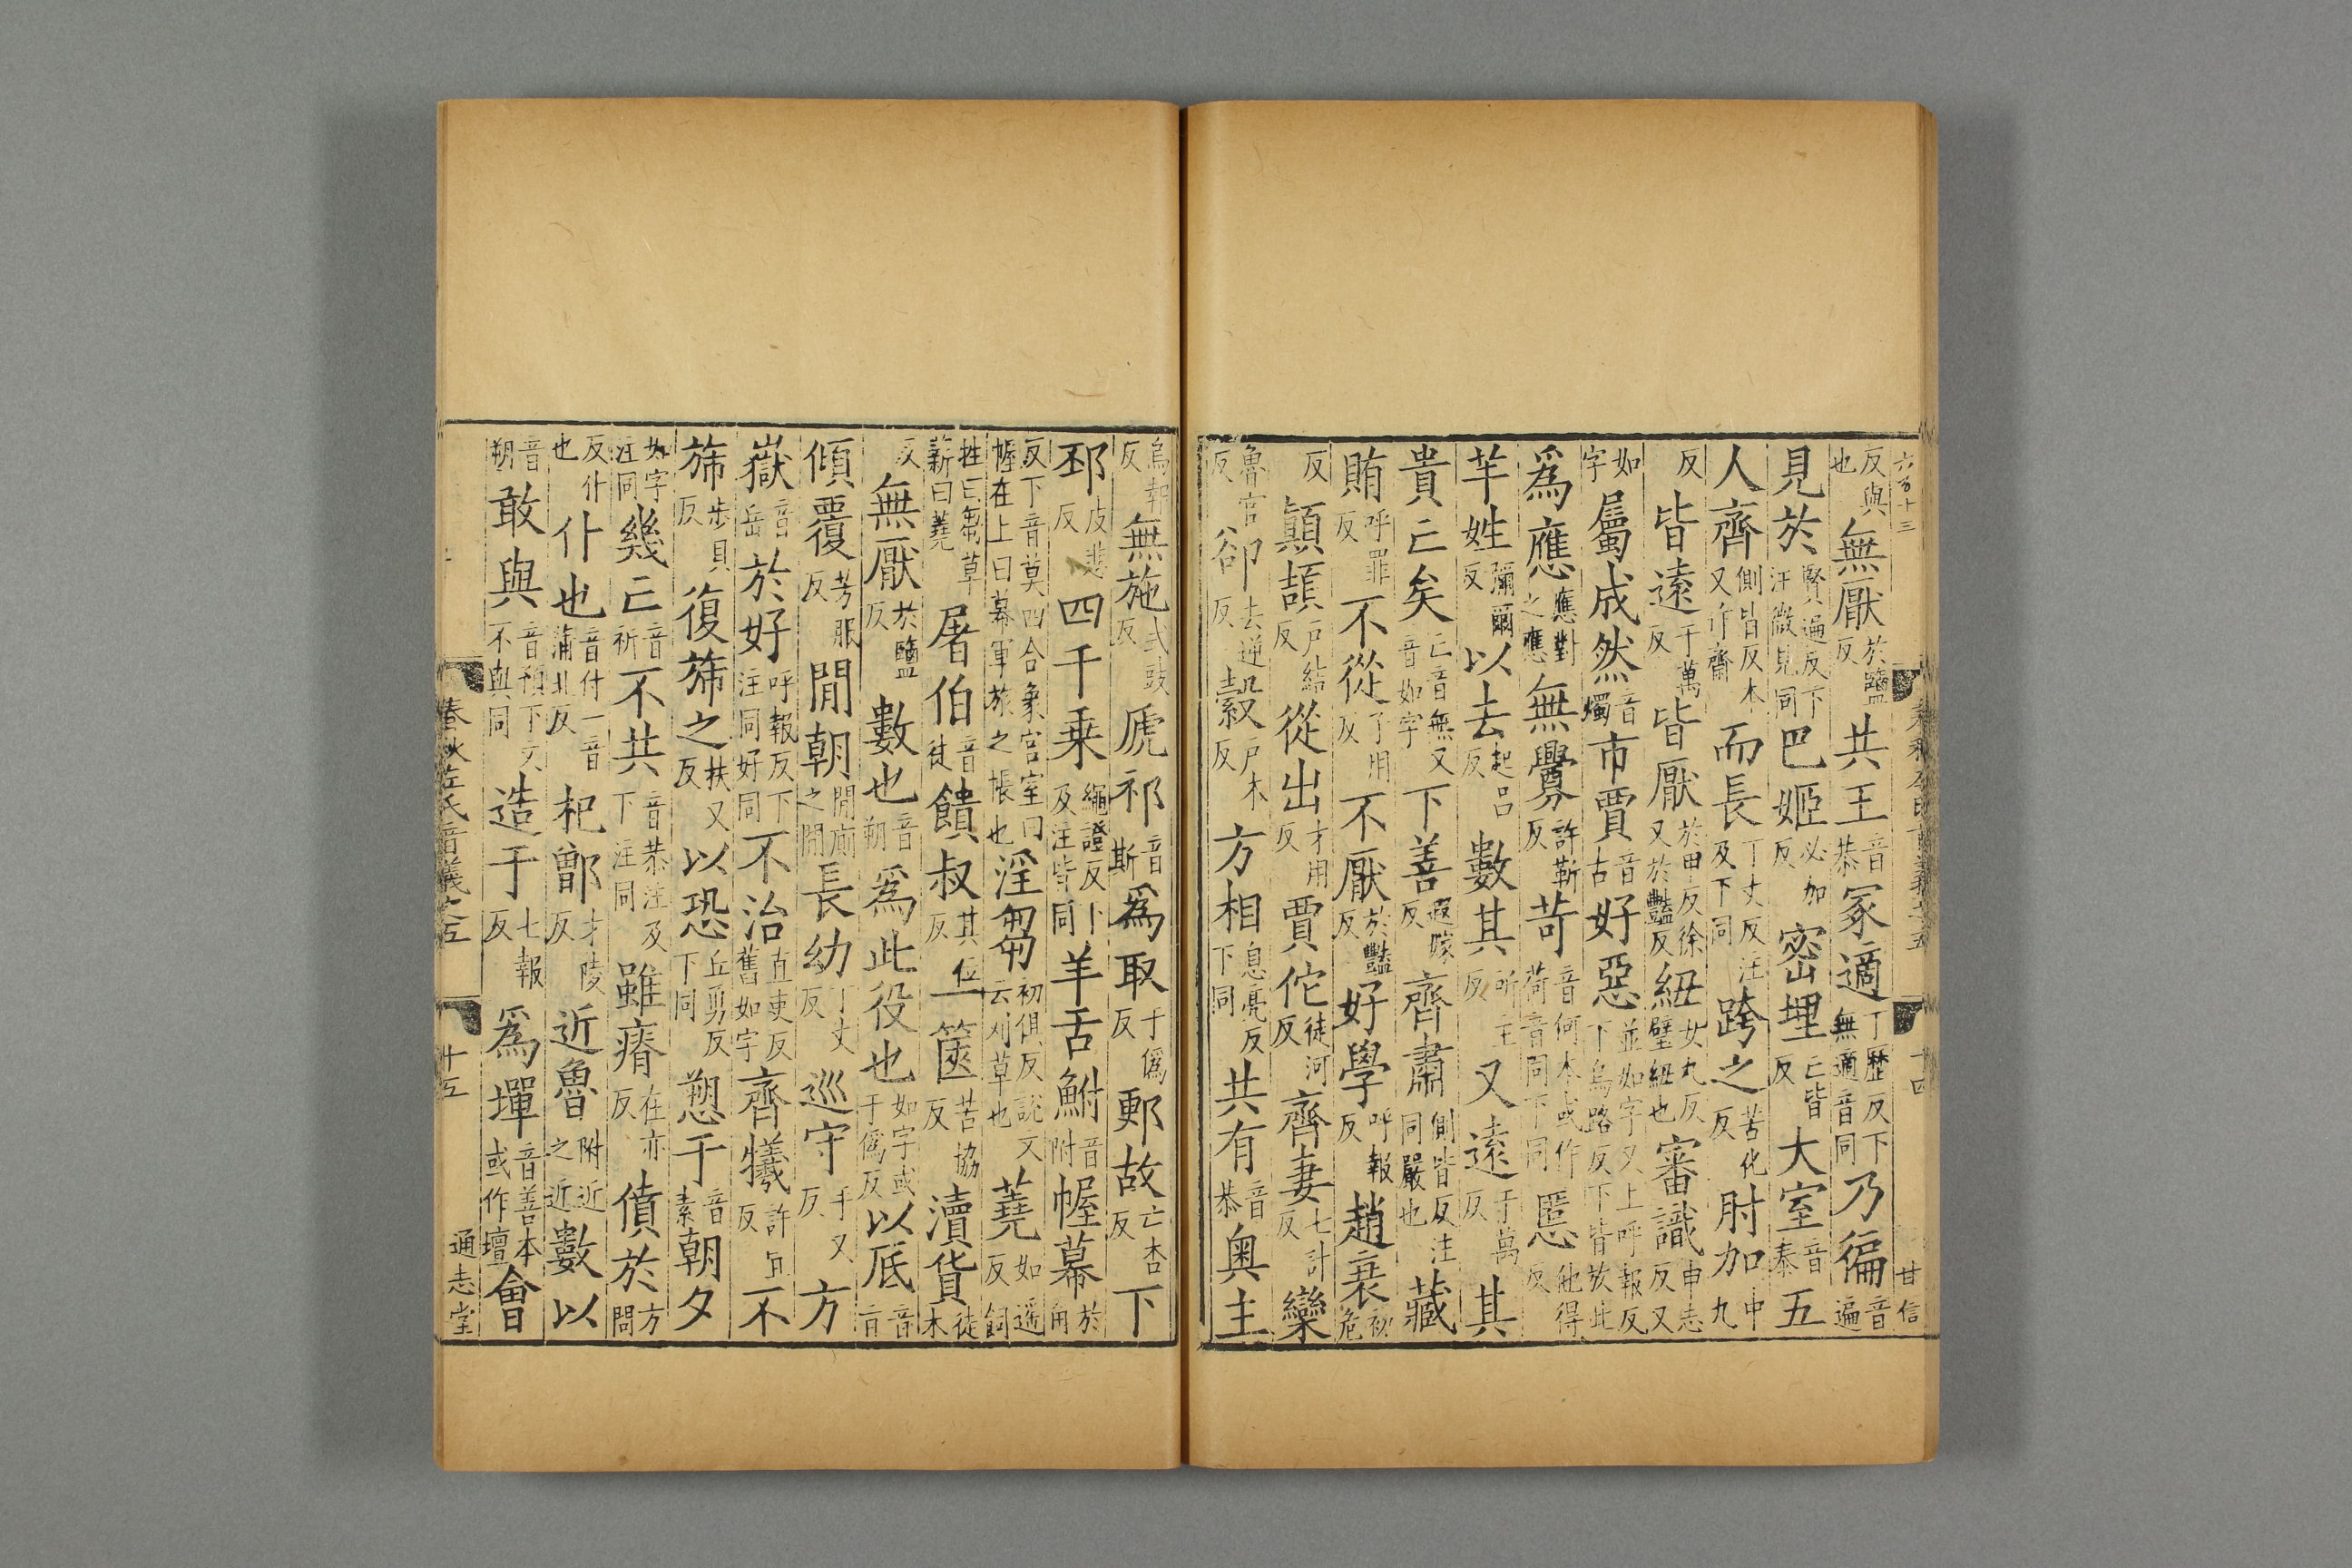 六百十三
反與也無厭於鹽反共王音恭冢適丁歷反下無適音同乃徧音遍
見於賢遍反下注微見同巴姬必加反密埋亡皆反大室音泰五
人齊側皆反本又作齋而長丁丈反注及下同跨之苦化反肘加中九
反皆遠于萬反皆厭於甲反徐又於豔反紐女九反璧紐也審識申志反又
如字屬成然音燭市賈音古好惡並如字又上呼報反下烏路反下皆放此
為應應對之應無釁許靳反苛音何本或作荷音同下同慝他得反
羋姓彌爾反以去起呂反數其所主反又遠于萬反其
貴亡矣亡音無又音如字下善遐嫁反齊肅側皆反注同嚴也藏
賄呼罪反不從了用反不厭於豔反好學呼報反趙衰初危
反顛頡戶結反從出才用反賈佗徒河反齊妻七計反欒
魯官反郤去逆反縠戶木反方相息亮反下同共有音恭奧主
烏報反無施式豉反虒祁音斯為取于偽反郠故亡杏反下
邳皮悲反四千乗繩證反卜及注皆同羊舌鮒音附幄幕於角
反下音莫四合象宮室曰幄在上曰幕軍旅之帳也淫芻初俱反說文云刈草也蕘如遥反飼
牲曰芻草薪曰蕘屠伯音徒饋叔其位反一篋苦協反瀆貨徒木
反無厭於鹽反數也音朔為此役也如字或于偽反以厎音旨
傾覆芳服反閒朝閒廁之閒長幼丁丈反巡守手又反方
嶽音岳於好呼報反下注同好同不治直吏反舊如字齊犧許宜反不
旆步貝反復旆之扶又反以恐丘勇反下同愬于音素朝夕
如字注同幾亡音祈不共音恭注及下注同雖瘠在亦反僨於方問
反仆也仆也音付一音蒲北反杞鄫才陵反近魯附近之近數以
音朔敢與音預下文不與同造于七報反為墠音善本或作壇會
春秋左氏音義之五
十五
通志堂
十四
甘信